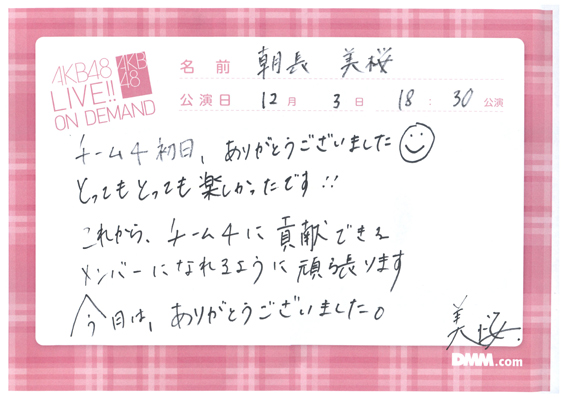 AKB48
LIVE!!
ON DEMAND
AKB
48
名前 朝長 美桜
公演日 12月 3日 18:30公演
チーム4初日、ありがとうございました
とってもとっても楽しかったです!!
これから、チーム4に貢献できる
メンバーになれるように頑張ります
今日は、ありがとうございました。
美桜.
DMM.com